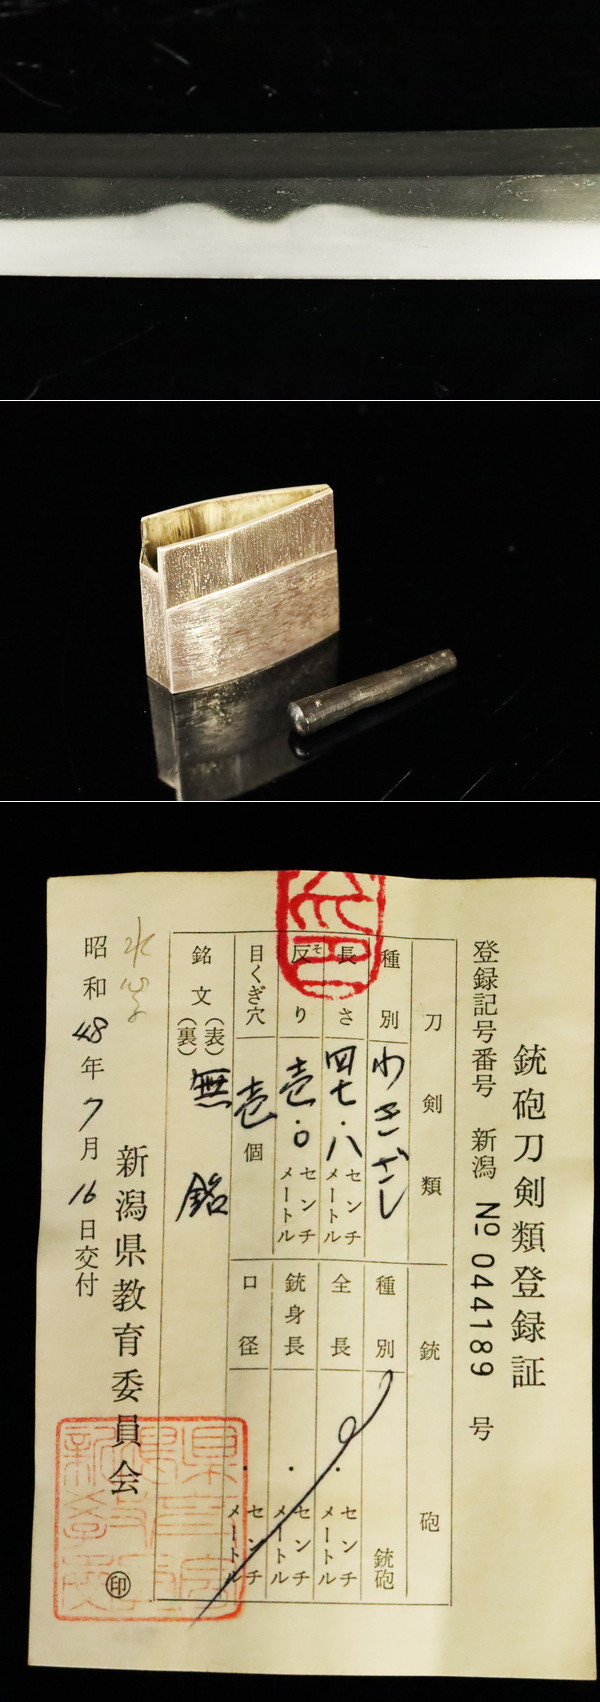 銃砲刀剣類登録証
登録記号番号 新潟 № 044189 号
刀剣類
銃砲
種別 わきざし
種別 銃砲
長さ 四七.八 センチメートル
全長 . センチメートル
反り そ 壱.〇 センチメートル
銃身長 . センチメートル
目くぎ穴 壱 個
口径 . センチメートル
銘文 (表) 無銘
(裏)
新潟県教育委員会 印
昭和48年7月16日交付